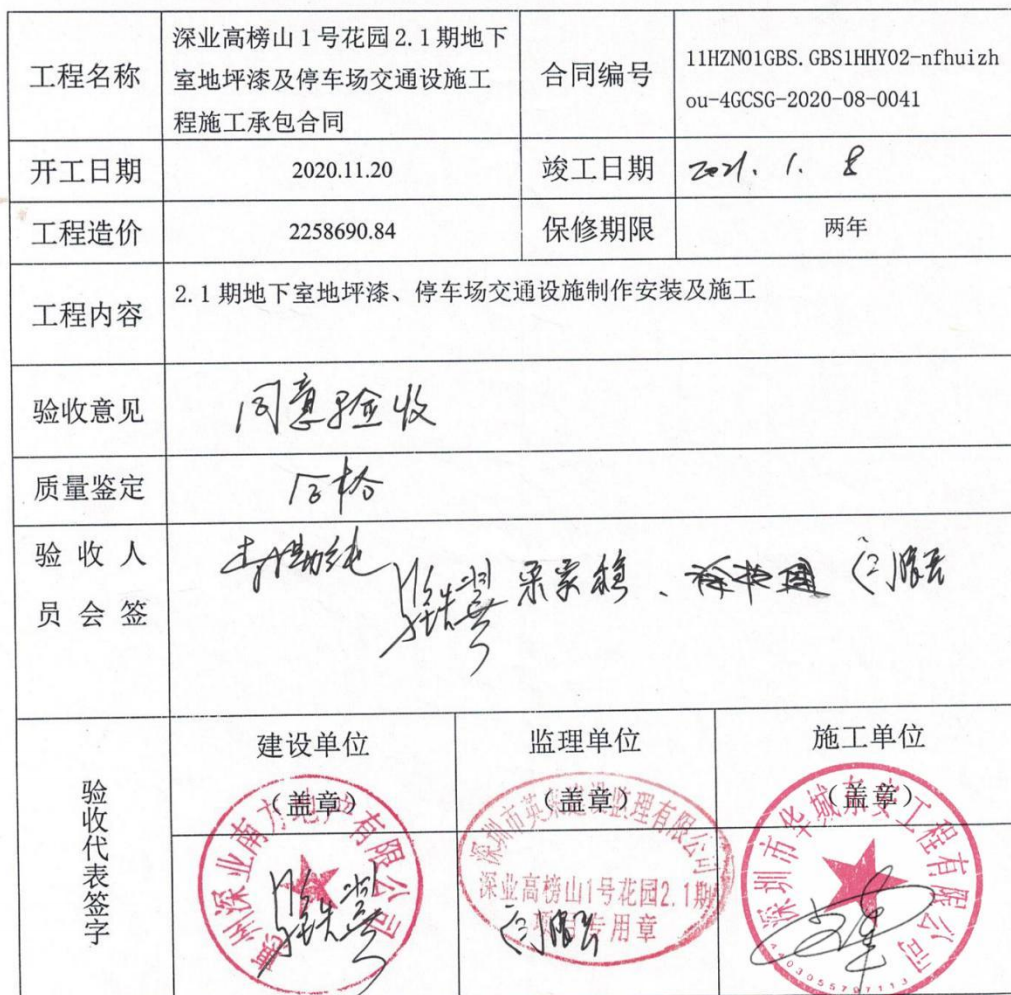 工程名称
深业高榜山1号花园2.1期地下
室地坪漆及停车场交通设施工
程施工承包合同
合同编号
11HZN01GBS.GBS1HHY02-nfhuizh
ou-4GCSG-2020-08-0041
开工日期
2020.11.20
竣工日期
2021. 1. 8
工程造价
2258690.84
保修期限
两年
工程内容
2.1期地下室地坪漆、停车场交通设施制作安装及施工
验收意见
同意验收
质量鉴定
合格
验收人
员会签
验收代表签字
建设单位
(盖章)
惠州深业南方地产有限公司
监理单位
(盖章)
深圳市英来建设监理有限公司
深业高榜山1号花园2.1期
项目专用章
施工单位
(盖章)
深圳市华城泰安工程有限公司